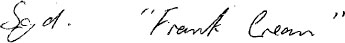 Sgd. "Frank Crean"